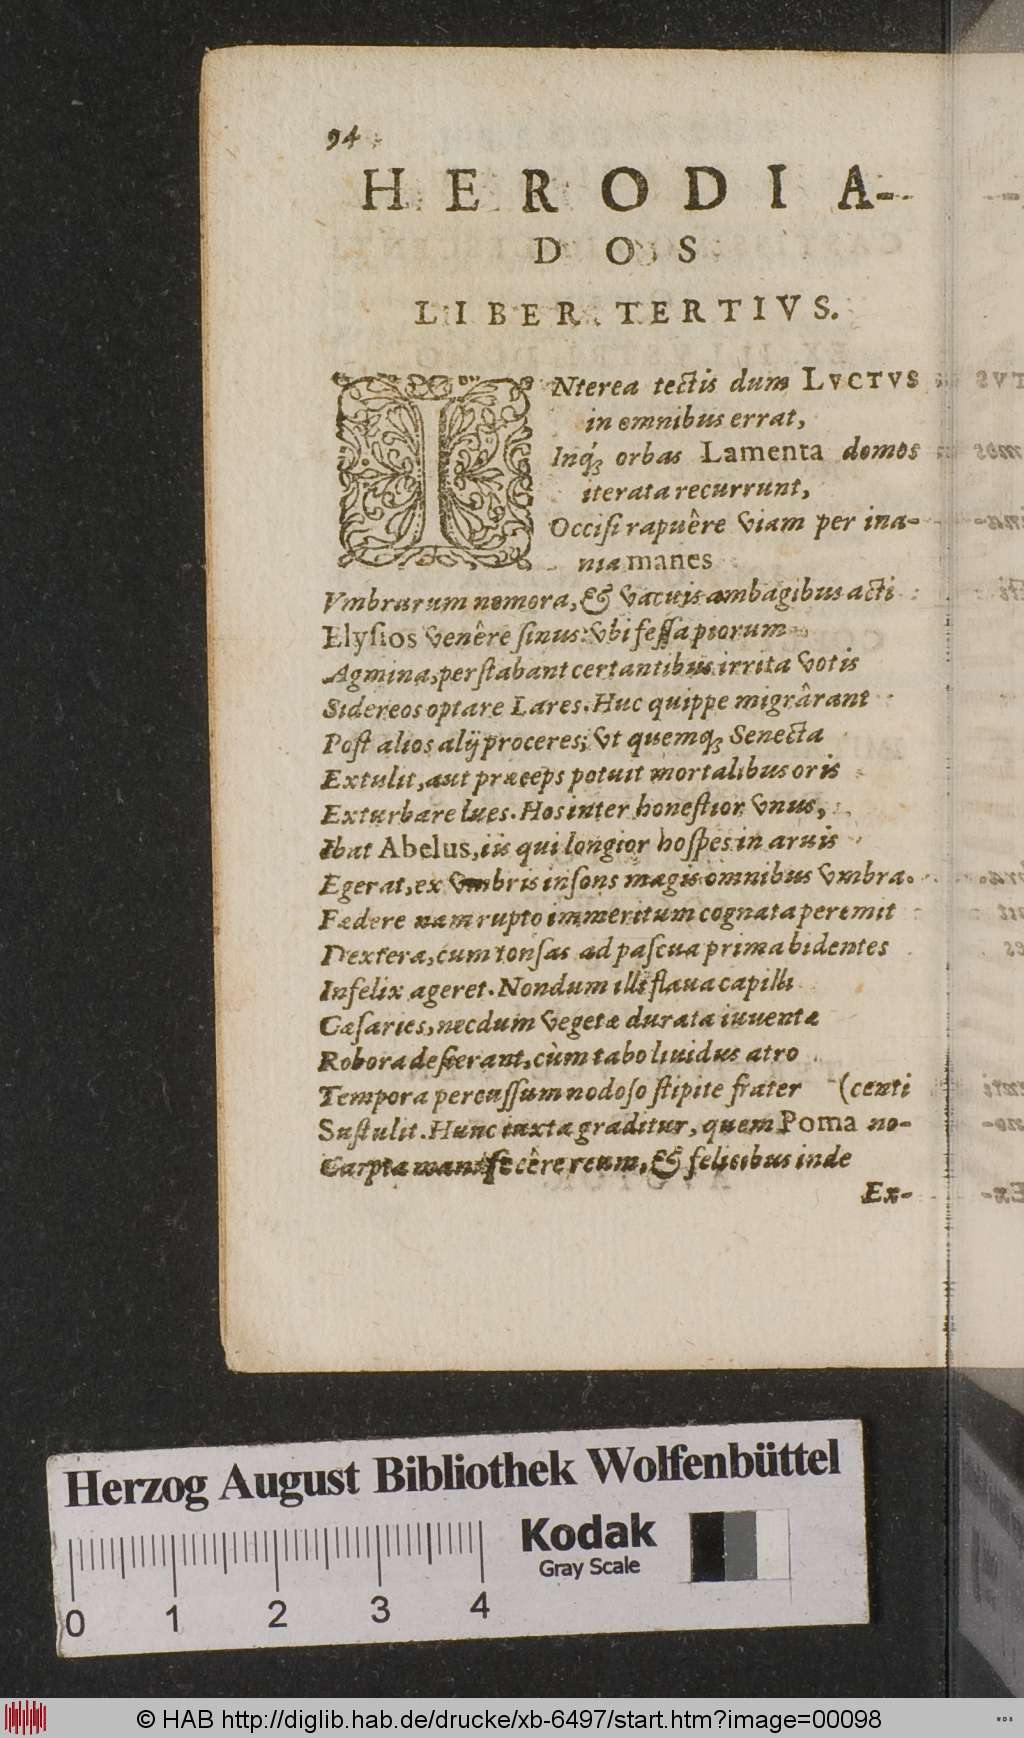 94
HERODIA-
DOS
LIBER TERTIVS.
INterea tectis dum LVCTVS
in omnibus errat,
Inq́; orbas Lamenta domos
iterata recurrunt,
Occisi rapuêre viam per ina-
nia manes
Vmbrarum nemora, & vacuis ambagibus acti
Elysios venêre sinus: vbi fessa piorum
Agmina, perstabant certantibus irrita votis
Sidereos optare Lares. Huc quippe migrârant
Post alios alij proceres; vt quemq; Senecta
Extulit, aut præceps potuit mortalibus oris
Exturbare lues. Hos inter honestior vnus,
Ibat Abelus, iis qui longior hospes in aruis
Egerat, ex vmbris insons magis omnibus vmbra.
Fœdere nam rupto immeritum cognata peremit
Dextera, cum tonsas ad pascua prima bidentes
Infelix ageret. Nondum illi flaua capilli
Cæsaries, necdum vegetæ durata iuuentæ
Robora desierant, cùm tabo liuidus atro
Tempora percussum nodoso stipite frater (centi
Sustulit. Hunc iuxta graditur, quem Poma no-
Carpta manu fecêre reum, & felicibus inde
Ex-
Herzog August Bibliothek Wolfenbüttel
Kodak
Gray Scale
0 1 2 3 4
© HAB http://diglib.hab.de/drucke/xb-6497/start.htm?image=00098